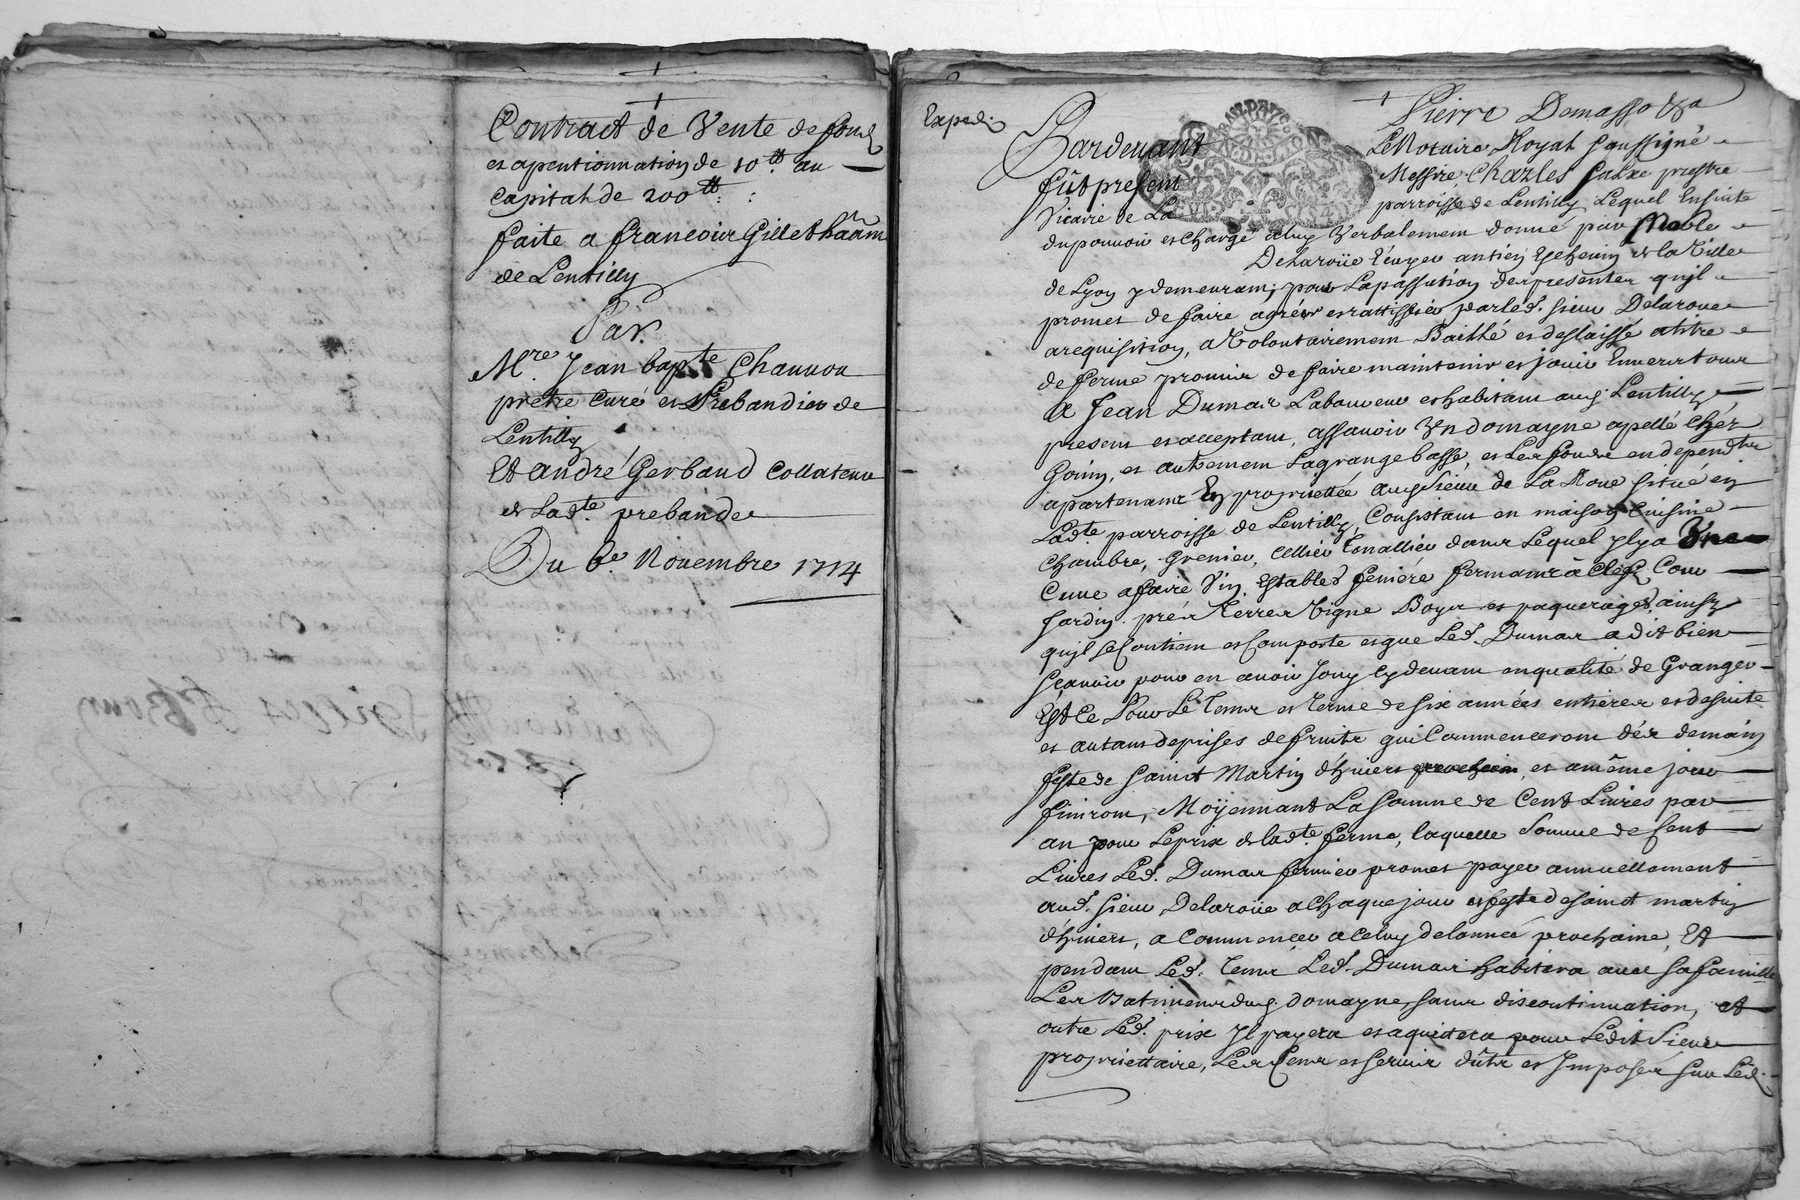 Contract de Vente de fond
et apentionnation de 10 tt au
capital de 200 tt :
faite a francois Gillet
de Lentilly
Par
Mre Jean bapte Chauuon
pretre Curé et Prebandier de
Lentilly
Et andré Gerbaud Collateur
de Ladte prebande
Du 6e Nouembre 1714
Exped.
Pierre Demasso
Pardeuant Le Notaire Royal soussigné
fût present Messire Charles prestre
Vicaire de La parroisse de Lentilly, Lequel Ensuite
du pouuoir et charge a luy Verbalement donné par Noble
Delaroüe Ecuyer antien Escheuin de la Ville
de Lyon y demeurant, pour La passation des presentes qu'jl
promet de faire agréer et rattiffier par led. sieur Delaroue
a requisition, a Volontairement Baillé et deslaissé a titre
de ferme promis de faire maintenir et jouir Enuers tous
A Jean Dumas Laboureur et habitant aud. Lentilly
present et acceptant, assauoir Vn domayne apellé chéz
Goiny, et autrement Lagrange basse, et Les fonds en dependts
apartenant En proprietté aud. sieur de La Roue situé en
Ladte parroisse de Lentilly, Consistant en maison Cuisine
Chambre, Grenier, Cellier Tenallier dans Lequel jl y a Vne
Cuue a faire Vin, Estables feniére fermants à Clef, Cour
Jardin, prés Terres Vigne Boys et paquerages, ainsy
qu'jl se Contient et Comporte et que Led. Dumas a dit bien
sçauoir pour en auoir Jouy cy deuant en qualité de Granger
Et Ce Pour Le Tems et Terme de six années entieres et de suite
et autant de prises de fruits qui Commenceront dés demain
feste de saint Martin d'hiuers et a même jour
finiront, Moÿennant La somme de Cent Liures par
an pour Le prix de ladte ferme, laquelle somme de sent
Liures Led. Dumas fermier promet payer annuellement
aud. sieur Delaroüe a Chaque jour et feste de saint martin
d'hiuers, a Commencer a Celuy de lannée prochaine, Et
pendant Led. Tems Led. Dumas habitera auec sa famille
Les Batiments dud. domayne, sans discontinuation, et
outre Led. prix Jl payera et aquittera pour Ledit sieur
propriettaire, Les Cens et seruis dûts et Jmposés sur Led.